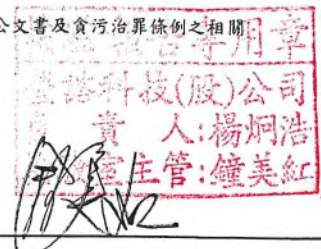 公文書及貪污治罪條例之相關
報告專用章
科技(股)公司
責人:楊炯浩
室主管:鐘美紅